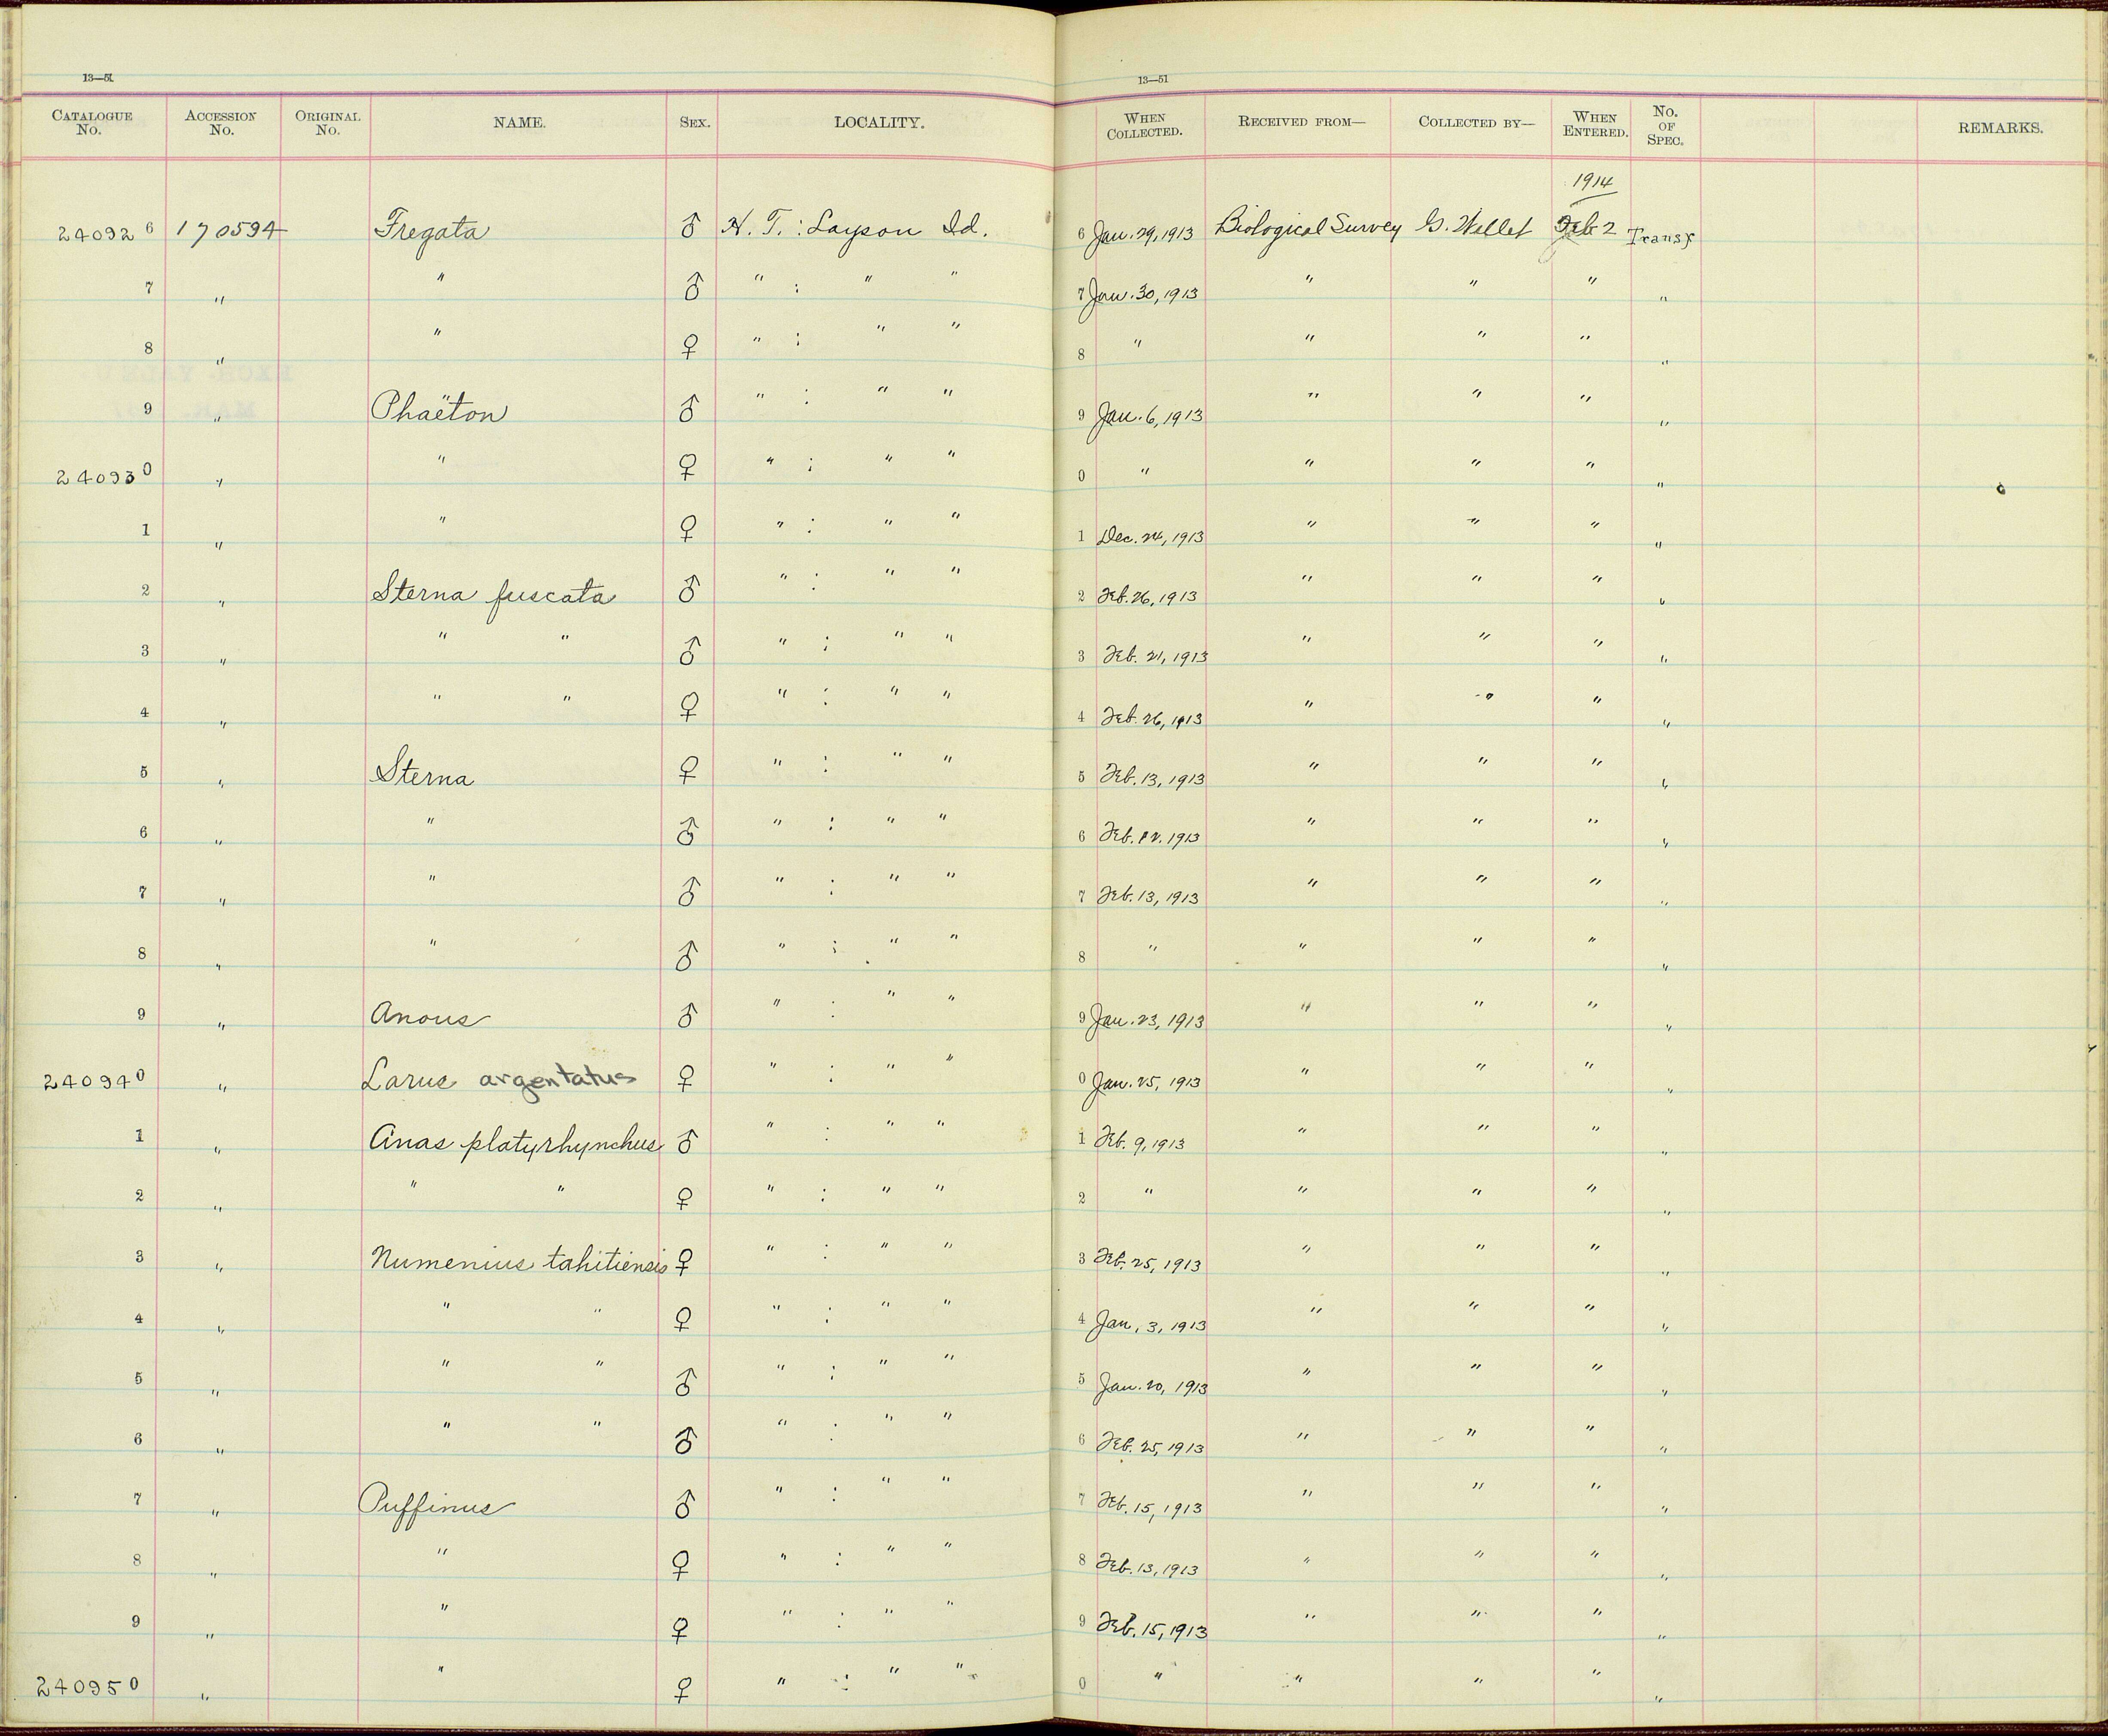 13—51 13—51
CATALOGUE No. ACCESSION No. ORIGINAL No. NAME. SEX. LOCALITY. WHEN COLLECTED. RECEIVED FROM— COLLECTED BY— WHEN ENTERED. No. OF SPEC. REMARKS.
1914
240926 170594 Fregata ♂ H. T. : Layson Id. 6 Jan. 29, 1913 Biological Survey G. Willet Feb 2 Transf
7 " " ♂ " : " " 7 Jan. 30, 1913 " " " "
8 " " ♀ " : " " 8 " " " " "
9 " Phaëton ♂ " : " " 9 Jan. 6, 1913 " " " "
240930 " " ♀ " : " " 0 " " " " "
1 " " ♀ " : " " 1 Dec. 24, 1913 " " " "
2 " Sterna fuscata ♂ " : " " 2 Feb. 26, 1913 " " " "
3 " " " ♂ " : " " 3 Feb. 21, 1913 " " " "
4 " " " ♀ " : " " 4 Feb. 26, 1913 " " " "
5 " Sterna ♀ " : " " 5 Feb. 13, 1913 " " " "
6 " " ♂ " : " " 6 Feb. 12. 1913 " " " "
7 " " ♂ " : " " 7 Feb. 13, 1913 " " " "
8 " " ♂ " : " " 8 " " " " "
9 " Anous ♂ " : " " 9 Jan. 23, 1913 " " " "
240940 " Larus argentatus ♀ " : " " 0 Jan. 25, 1913 " " " "
1 " Anas platyrhynchus ♂ " : " " 1 Feb. 9, 1913 " " " "
2 " " " ♀ " : " " 2 " " " " "
3 " Numenius tahitiensis ♀ " : " " 3 Feb. 25, 1913 " " " "
4 " " " ♀ " : " " 4 Jan. 3, 1913 " " " "
5 " " " ♂ " : " " 5 Jan. 20, 1913 " " " "
6 " " " ♂ " : " " 6 Feb. 25, 1913 " " " "
7 " Puffinus ♂ " : " " 7 Feb. 15, 1913 " " " "
8 " " ♀ " : " " 8 Feb. 13, 1913 " " " "
9 " " ♀ " : " " 9 Feb. 15, 1913 " " " "
240950 " " ♀ " : " " 0 " " " " "